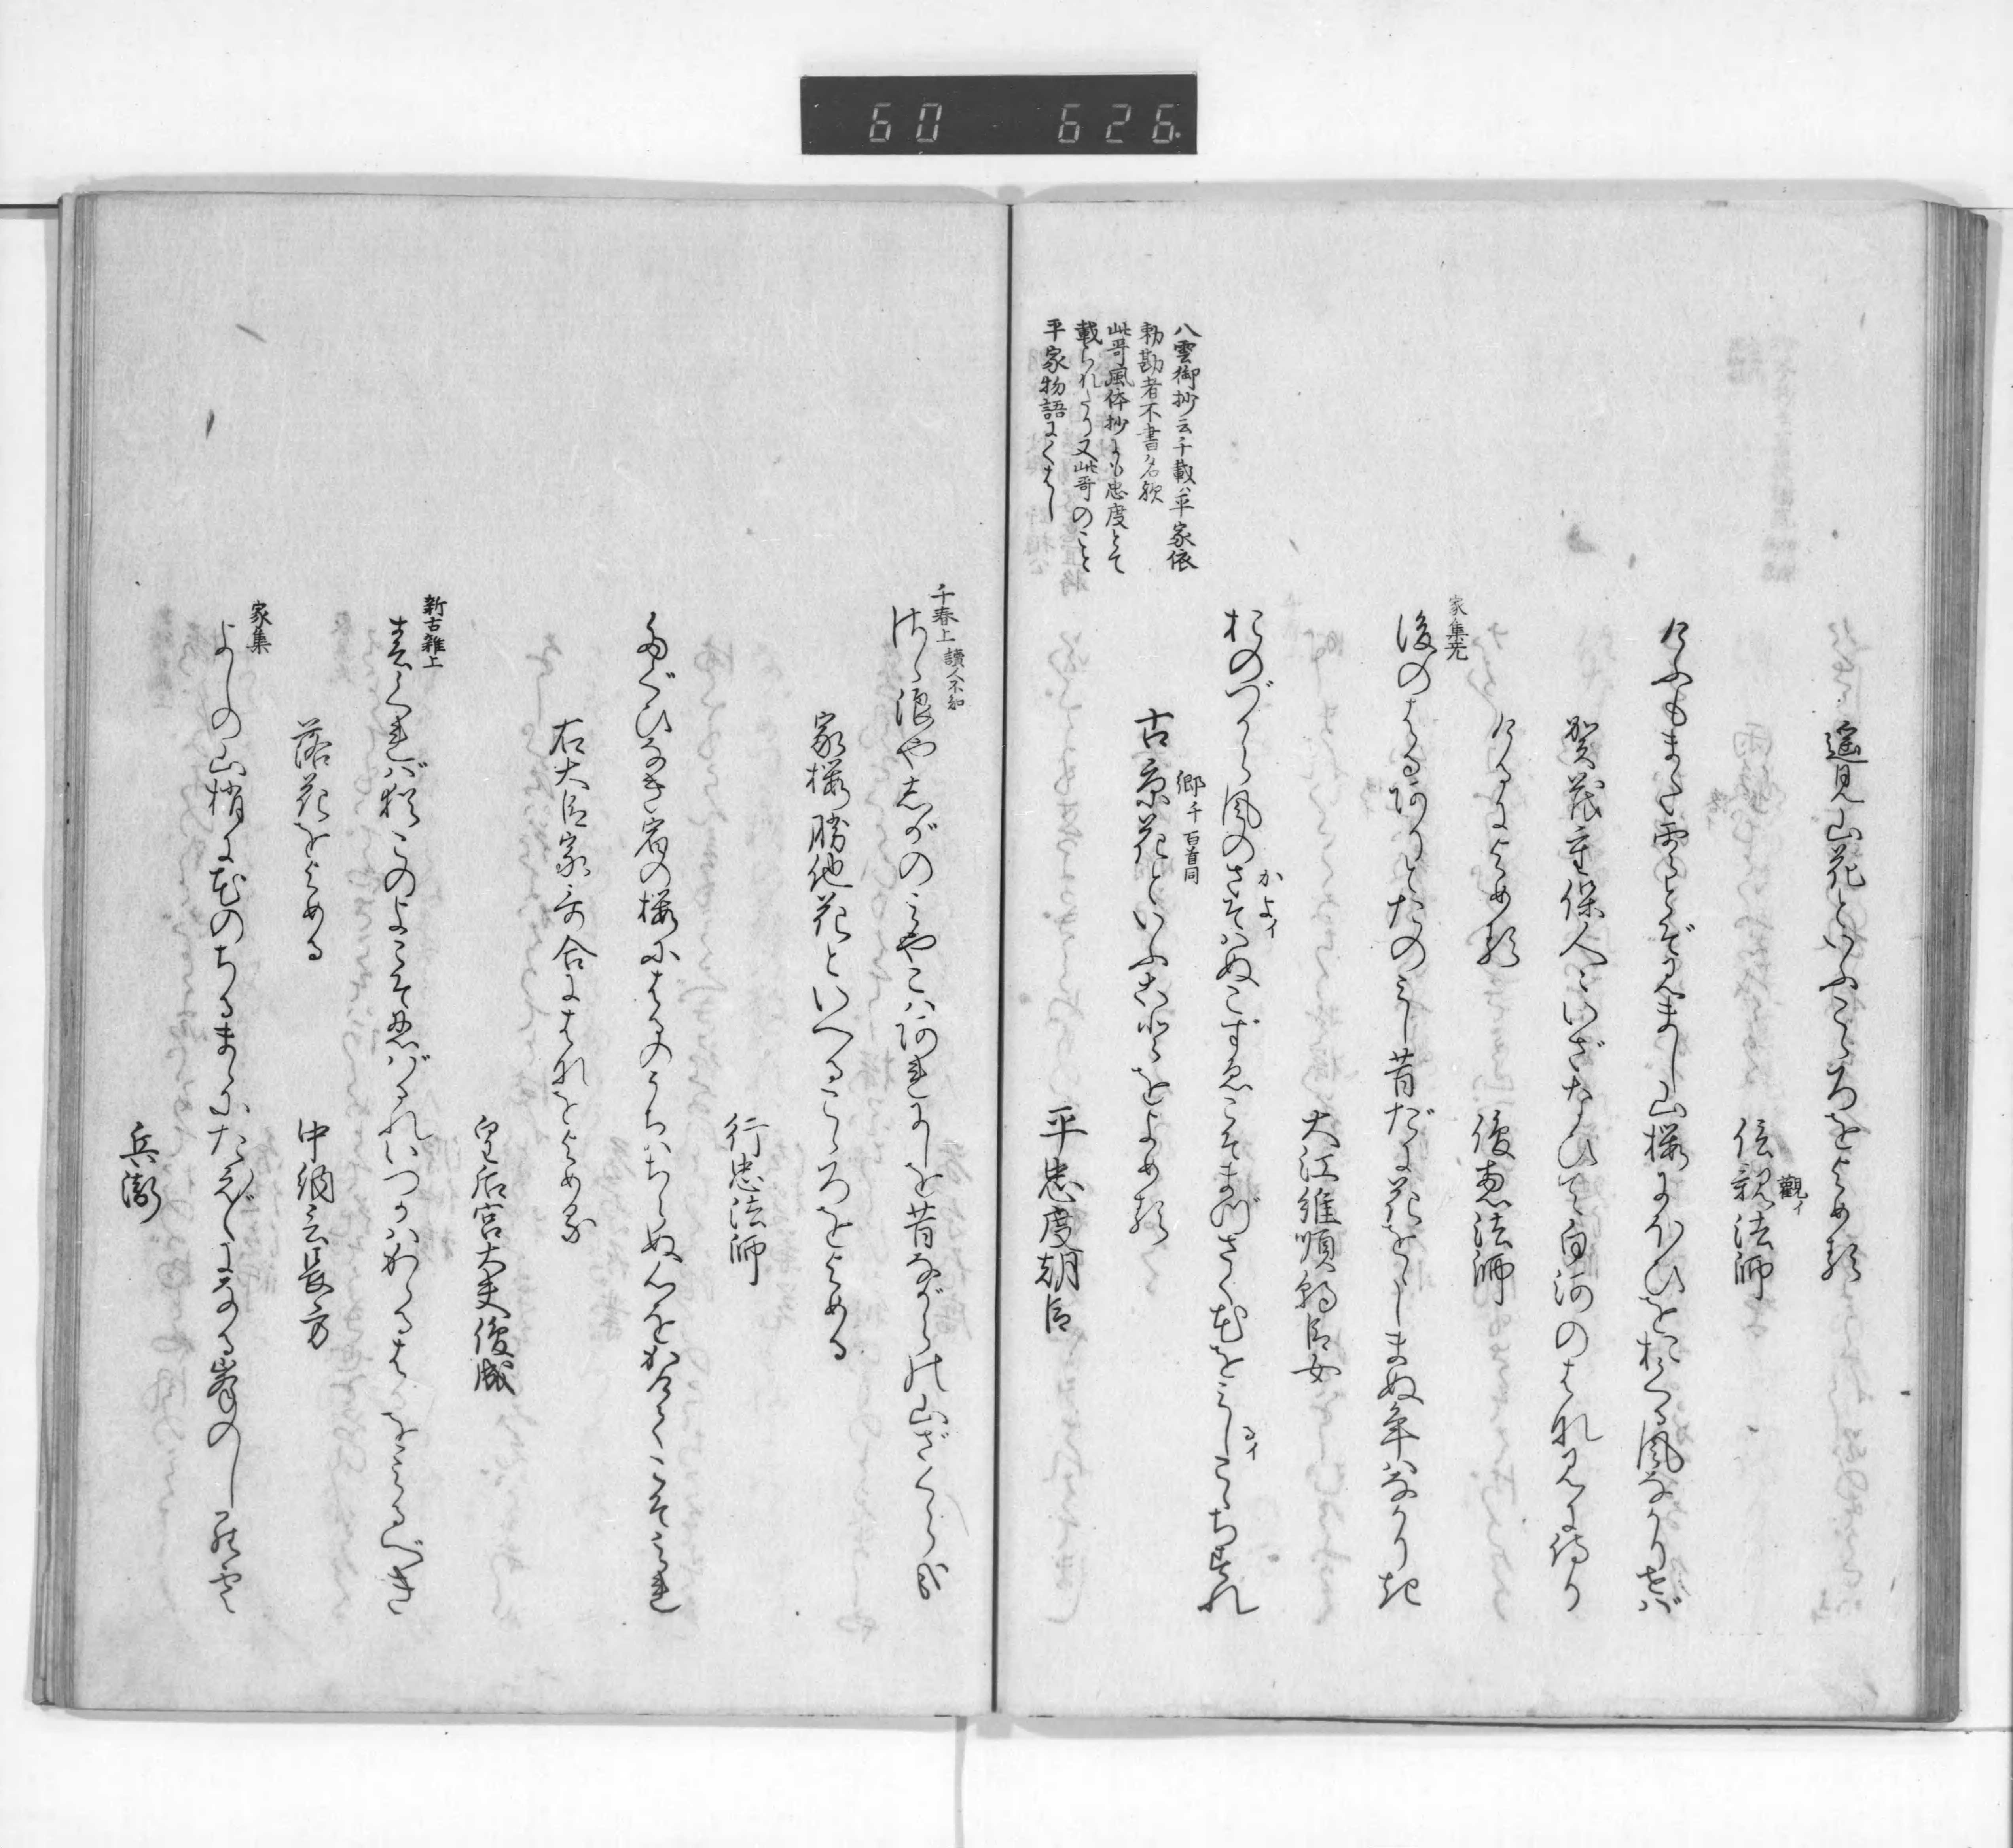 60 626
遥見山花といふこゝろをよめる
信親法師
觀イ
けふもまた雲とぞみまし山桜にほひをおくる風なかりせば
賀茂重保人々いざなひて白河のはな見に侍り
けるによめる
俊恵法師
家集无
後のはるありとたのみし昔だに花をゝしまぬ年はなかりき
大江維順朝臣女
おのづから風のさそはぬこずゑこそまづさく花をみしこゝちすれ
かよイ
るイ
古京花といふこゝろをよめる
郷千 百首同
平忠度朝臣
八雲御抄云千載ハ平家依
勅勘者不書名歟
此哥風体抄にも忠度とて
載られたり又此哥のこと
平家物語にくはし
千春上 讀人不知
さゝ浪や志がのみやこはあれにしを昔ながらの山ざくらかな
家桜勝他花といへるこゝろをよめる
行忠法師
たぐひなき宿の桜にはるのうちはちらぬ心をかけてこそみれ
右大臣家哥合にはなをよめる
皇后宮大夫俊成
新古雑上
春くれば猶このよこそ忍ばるれいつかはかゝるはなをみるべき
落花をよめる
中納言長方
家集
よしの山梢に花のちるまゝにたえ〴〵になる峯のしら雲
兵衛